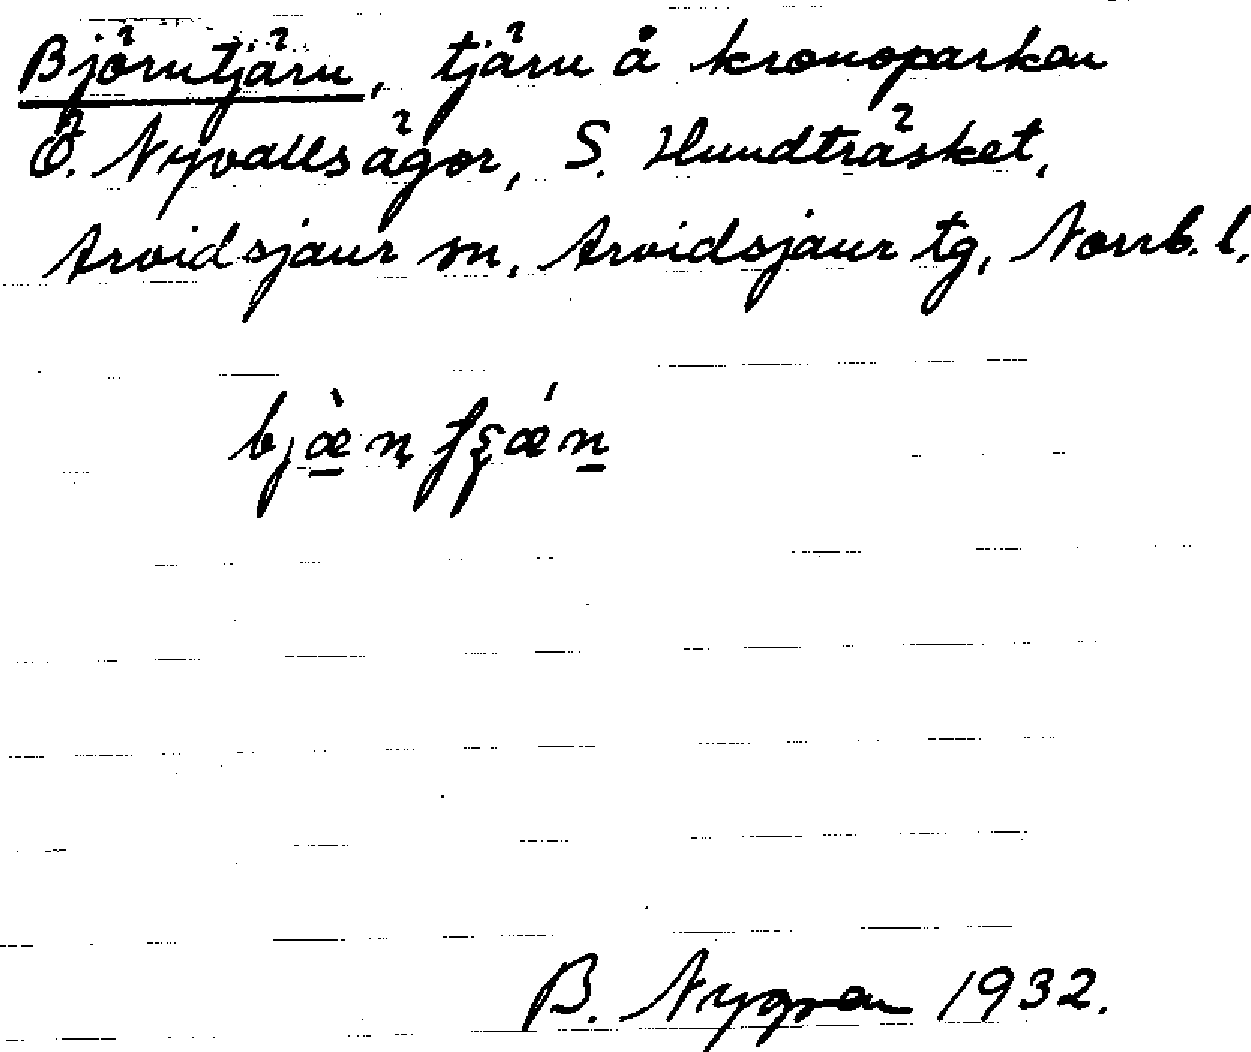 Björntjärn, tjärn å kronoparken
Ö. Nyvallsägor, S. Hundträsket,
Arvidsjaur sn, Arvidsjaur tg, Norrb. l.
B. Nygren 1932.